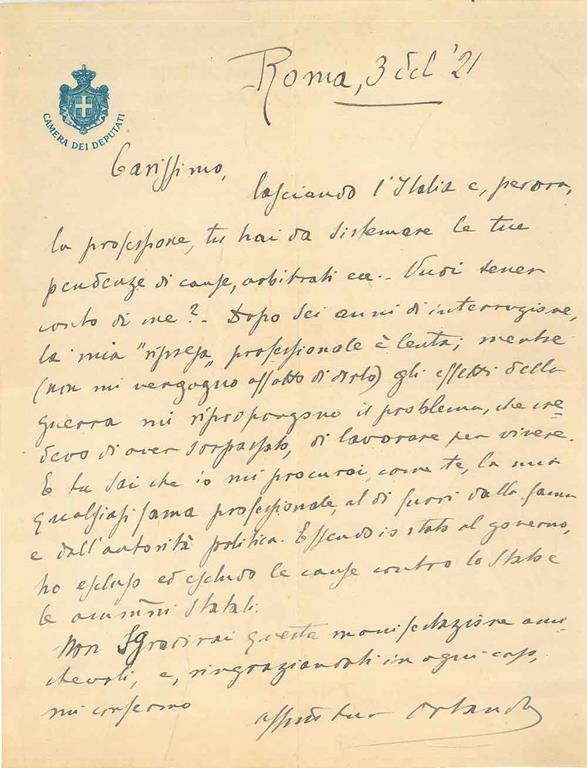 Roma, 3 dic '21
CAMERA DEI DEPUTATI
Carissimo,
lasciando l'Italia e, perora,
la professione, tu hai da sistemare le tue
pendenze di cause, arbitrati ecc.. Vuoi tener
conto di me?. Dopo sei anni di interruzione,
la mia "ripresa" professionale è lenta; mentre
(non mi vergogno affatto di dirlo) gli effetti della
guerra mi ripropongono il problema, che cre=
devo di aver sorpassato, di lavorare per vivere.
E tu sai che io mi procurai, come te, la mia
qualsiasi fama professionale, al di fuori dalla fama
e dall'autorità politica. Essendo io stato al governo,
ho escluso ed escludo le cause contro lo Stato e
le ammni statali.
Non sgradirai questa manifestazione ami
chevole, e, ringraziandoti in ogni caso,
mi confermo
affmo tuo Orlando